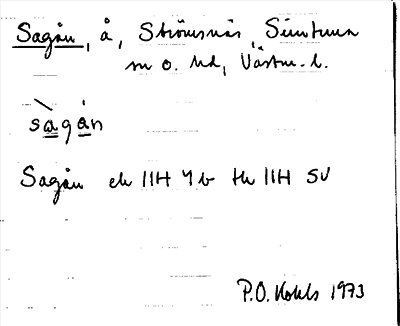 Sagån, å, Strömsnäs, Simtuna
m o. hd, Västm. l.
sàgán
Sagån ek 11H 4b th 11H SV
P.O. Kohls 1973